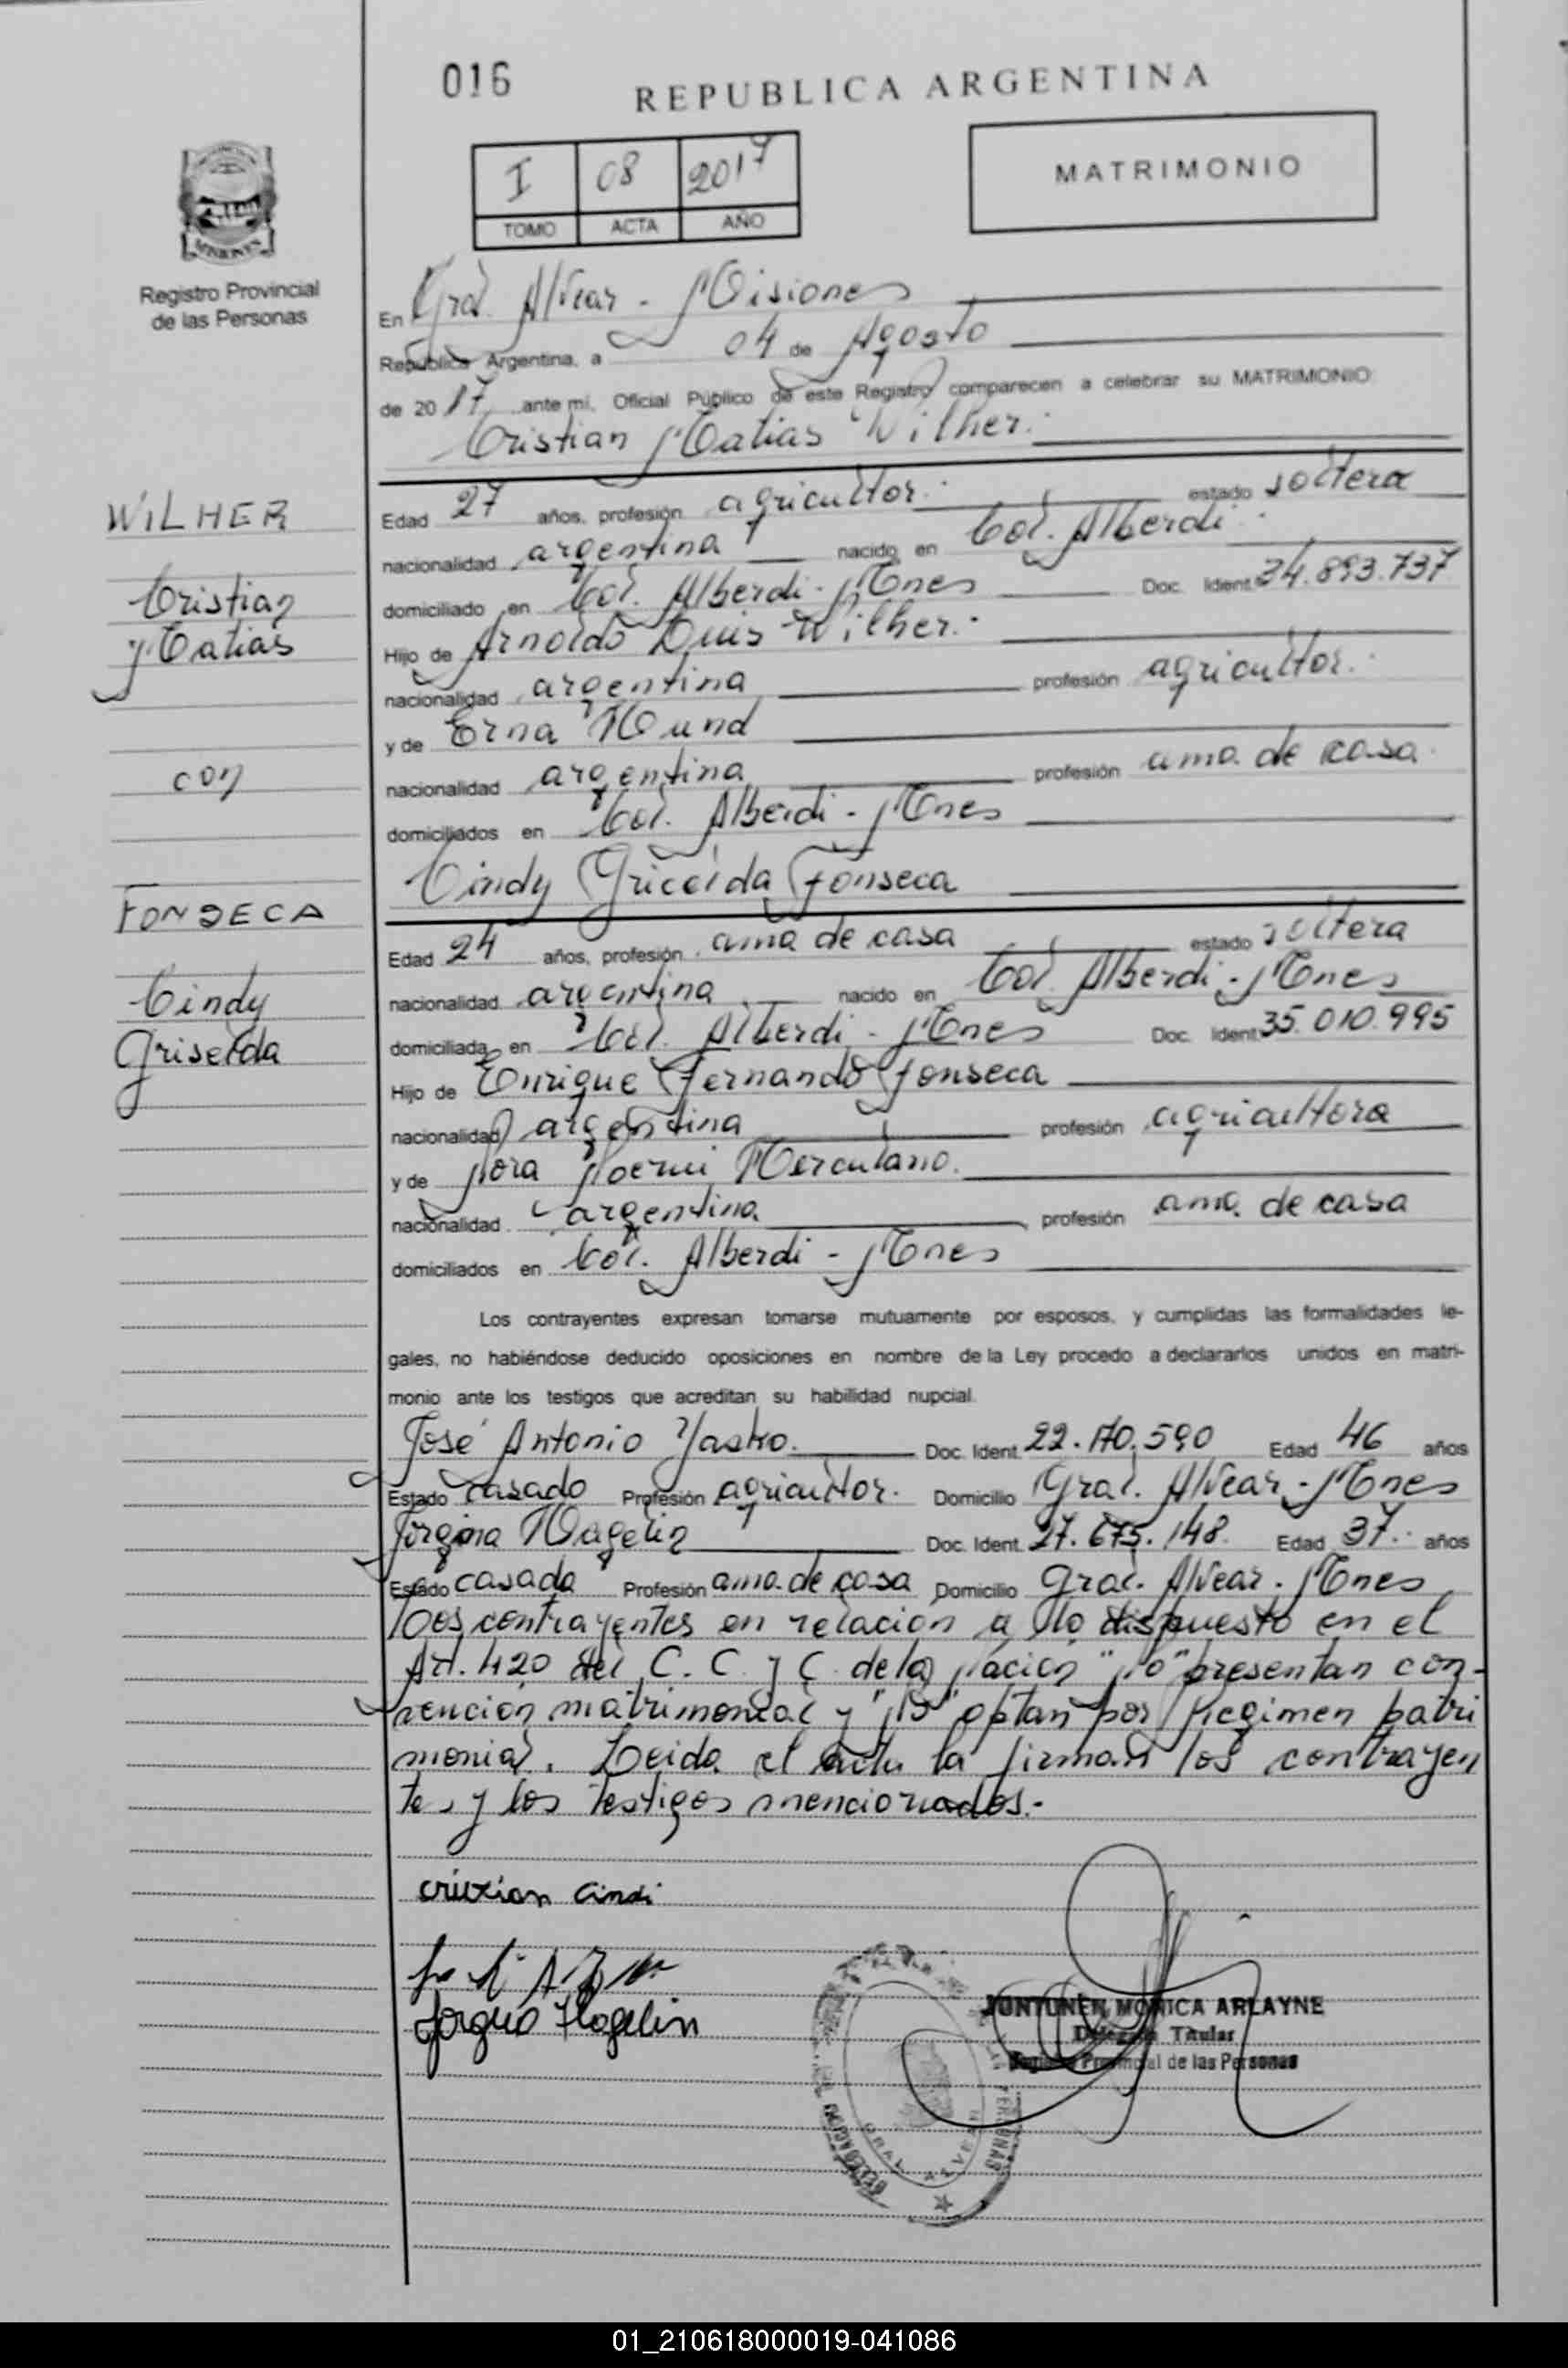 016
REPUBLICA ARGENTINA
I 08 2017
TOMO ACTA AÑO
MATRIMONIO
MISIONES
Registro Provincial
de las Personas
En Gral. Alvear - Misiones
República Argentina, a 04 de Agosto
de 2017 ante mi, Oficial Público de este Registro comparecen a celebrar su MATRIMONIO:
Cristian Matias Wilher.
WILHER
Cristian
Matias
con
FONSECA
Cindy
Griselda
Edad 27 años, profesión agricultor. estado soltera
nacionalidad argentina nacido en Col. Alberdi.
domiciliado en Col. Alberdi - Mnes Doc. Ident. 34.893.737
Hijo de Arnoldo Luis Wilher.
nacionalidad argentina profesión agricultor.
y de Erna Hund
nacionalidad argentina profesión ama de casa.
domiciliados en Col. Alberdi - Mnes
Cindy Gricelda Fonseca
Edad 24 años, profesión ama de casa estado soltera
nacionalidad argentina nacido en Col. Alberdi - Mnes
domiciliada en Col. Alberdi - Mnes Doc. Ident. 35.010.995
Hijo de Enrique Fernando Fonseca
nacionalidad argentina profesión agricultora
y de Nora Noemi Herculano.
nacionalidad argentina profesión ama de casa
domiciliados en Col. Alberdi - Mnes
Los contrayentes expresan tomarse mutuamente por esposos, y cumplidas las formalidades le-
gales, no habiéndose deducido oposiciones en nombre de la Ley procedo a declararlos unidos en matri-
monio ante los testigos que acreditan su habilidad nupcial.
José Antonio Yasko. Doc. Ident. 22.170.590 Edad 46 años
Estado casado Profesión agricultor. Domicilio Gral. Alvear - Mnes
Jorgina Hagelin Doc. Ident. 27.675.148. Edad 37. años
Estado casada Profesión ama de casa Domicilio Gral. Alvear - Mnes
Los contrayentes en relacion a lo dispuesto en el
Art. 420 del C. C. y C. de la Nacion "No" presentan con-
vencion matrimonial y "No" optan por Regimen patri
monial. Leida el acta la firman los contrayen
tes y los testigos mencionados.-
Cindi
Hagelin
JUNTUNEN MONICA ARLAYNE
Delegada Titular
Registro Provincial de las Personas
GRAL ALVEAR
01_210618000019-041086